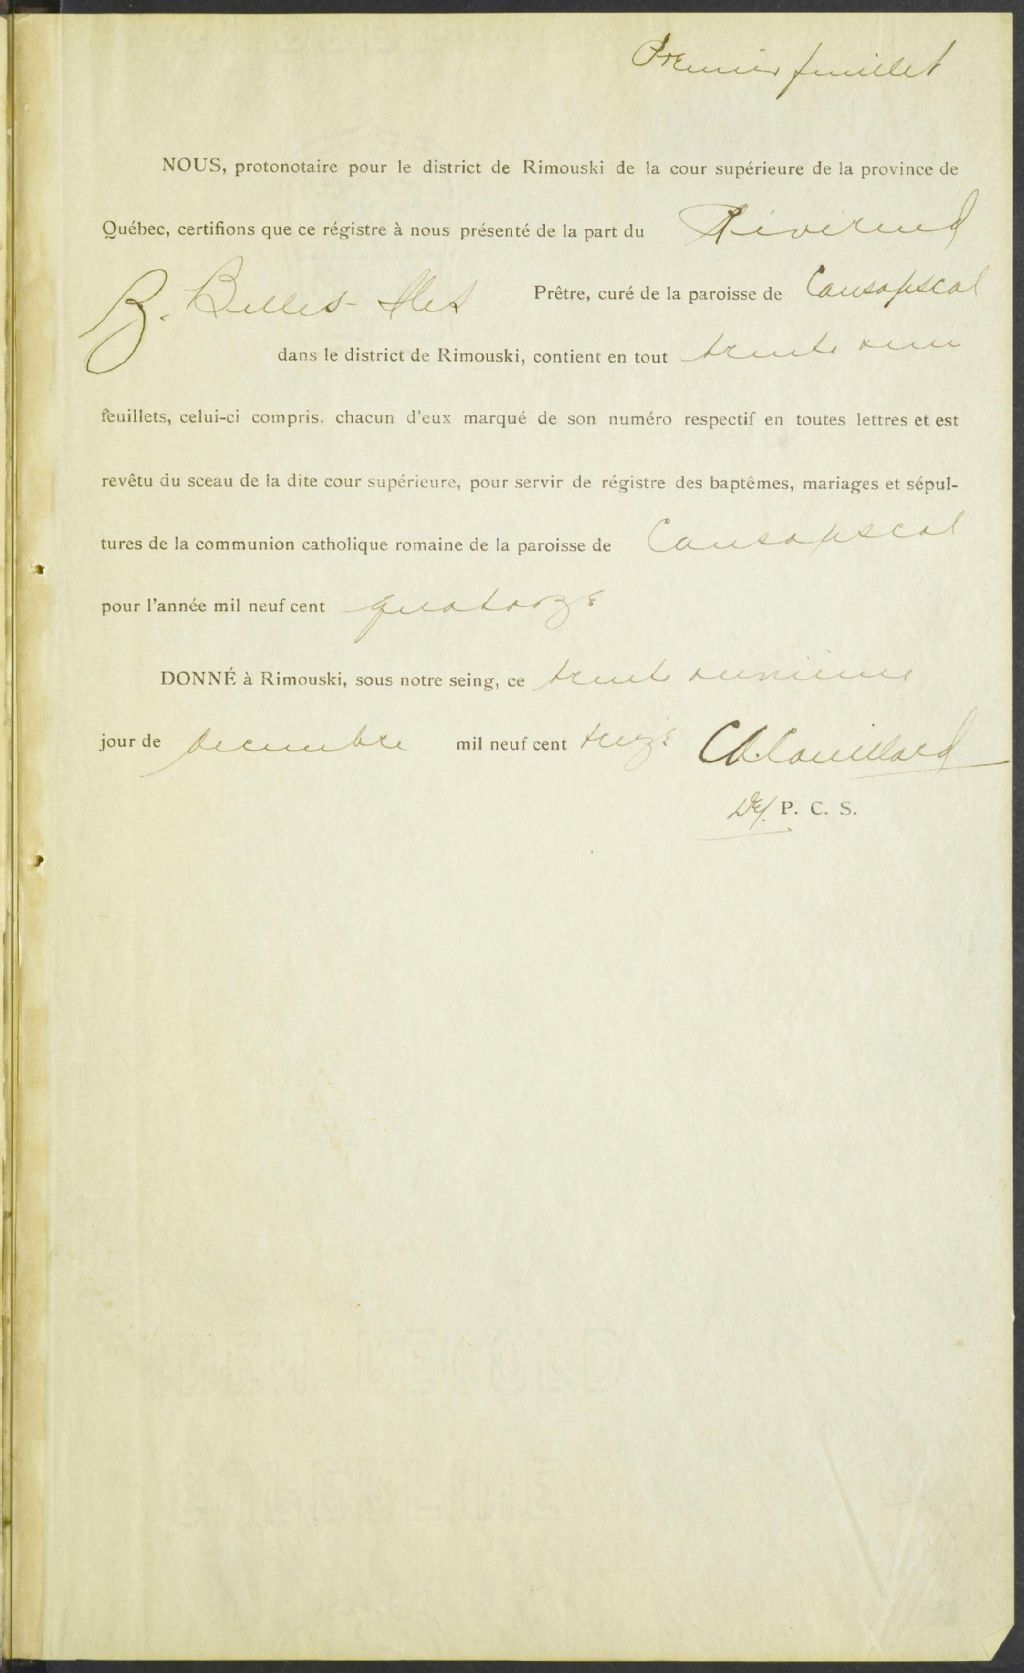 Premier feuillet
NOUS, protonotaire pour le district de Rimouski de la cour supérieure de la province de
Québec, certifions que ce régistre à nous présenté de la part du Révérend
B. Belles-Iles Prêtre, curé de la paroisse de Causapscal
dans le district de Rimouski, contient en tout trente
feuillets, celui-ci compris, chacun d'eux marqué de son numéro respectif en toutes lettres et est
revêtu du sceau de la dite cour supérieure, pour servir de régistre des baptêmes, mariages et sépul-
tures de la communion catholique romaine de la paroisse de Causapscal
pour l'année mil neuf cent quatorze
DONNÉ à Rimouski, sous notre seing, ce trente unième
jour de decembre mil neuf cent treize
Dep. P. C. S.